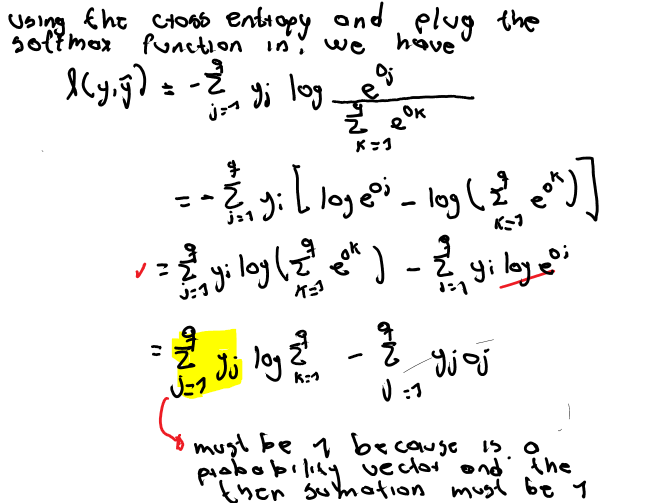 using the cross entropy and plug the
softmax function in, we have
l(y,ŷ) = - Σ_{j=1}^{q} y_j log e^{o_j} / Σ_{k=1}^{q} e^{o_k}
= - Σ_{j=1}^{q} y_j [ log e^{o_j} - log ( Σ_{k=1}^{q} e^{o_k} ) ]
✓ = Σ_{j=1}^{q} y_j log ( Σ_{k=1}^{q} e^{o_k} ) - Σ_{j=1}^{q} y_j log e^{o_j}
= Σ_{j=1}^{q} y_j log Σ_{k=1}^{q} - Σ_{j=1}^{q} y_j o_j
must be 1 because is a
probability vector and the
then sumation must be 1